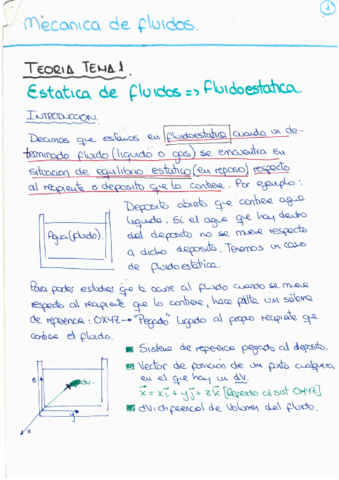 1
Mecanica de fluidos.
TEORIA TEMA 1.
Estatica de fluidos => Fluidoestatica.
INTRODUCCION.
Decimos que estamos en fluidoestatica cuando un de-
terminado fluido (liquido o gas) se encuentra en
situacion de equilibrio estatico (en reposo) respecto
al recipiente o deposito que lo contiene. Por ejemplo:
Agua (fluido).
Deposito abierto que contiene agua
liquida. Si el agua que hay dentro
del deposito no se mueve respecto
a dicho deposito. Tenemos un caso
de fluidoestática.
Para poder estudiar que le ocurre al fluido cuando se mueve
respecto al recipiente que lo contiene, hace falta un sistema
de referencia: OXYZ → "Pegado" ligado al propio recipiente que
contiene el fluido.
dv.
y
x
Sistema de referencia pegado al deposito.
Vector de posicion de un punto cualquiera
en el que hay un dV.
x = xi + yj + zk
dV: diferencial de Volumen del fluido.